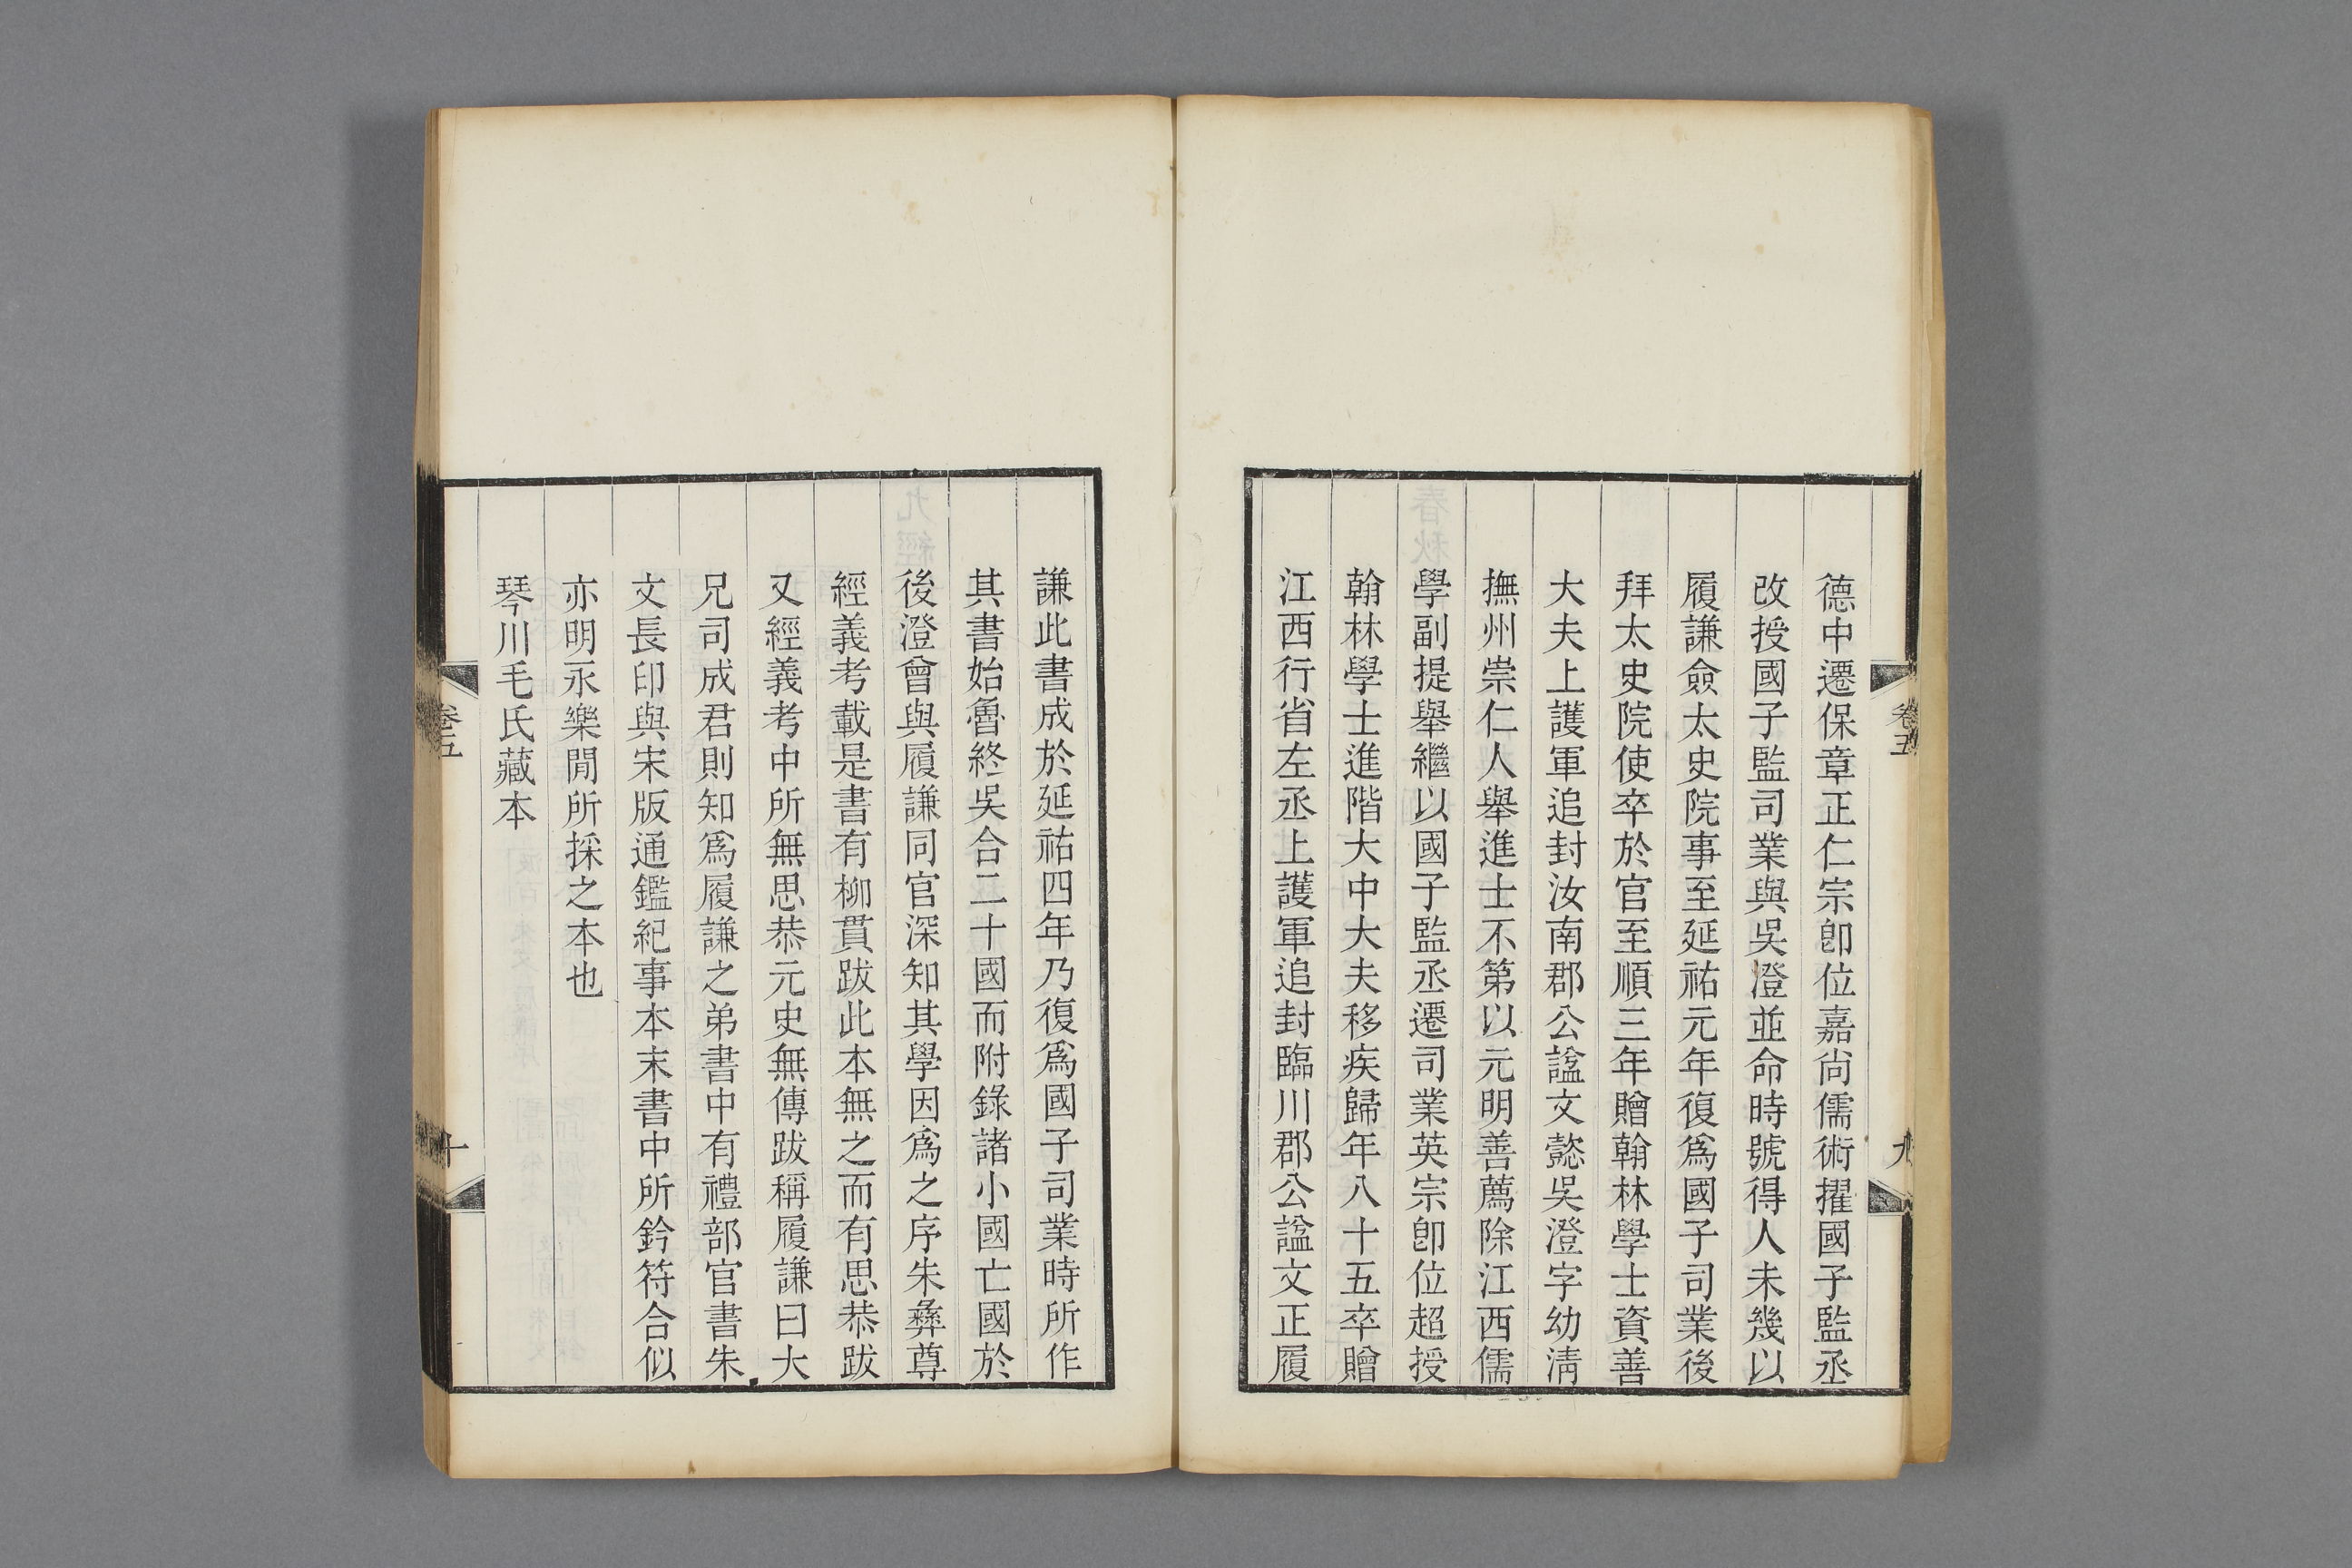 卷五
九
德中遷保章正仁宗卽位嘉尙儒術擢國子監丞
改授國子監司業與吳澄並命時號得人未幾以
履謙僉太史院事至延祐元年復爲國子司業後
拜太史院使卒於官至順三年贈翰林學士資善
大夫上護軍追封汝南郡公諡文懿吳澄字幼淸
撫州崇仁人舉進士不第以元明善薦除江西儒
學副提舉繼以國子監丞遷司業英宗卽位超授
翰林學士進階大中大夫移疾歸年八十五卒贈
江西行省左丞上護軍追封臨川郡公諡文正履
謙此書成於延祐四年乃復爲國子司業時所作
其書始魯終吳合二十國而附錄諸小國亡國於
後澄曾與履謙同官深知其學因爲之序朱彝尊
經義考載是書有柳貫跋此本無之而有思恭跋
又經義考中所無思恭元史無傳跋稱履謙曰大
兄司成君則知爲履謙之弟書中有禮部官書朱
文長印與宋版通鑑紀事本末書中所鈐符合似
亦明永樂閒所採之本也
琴川毛氏藏本
卷五
十